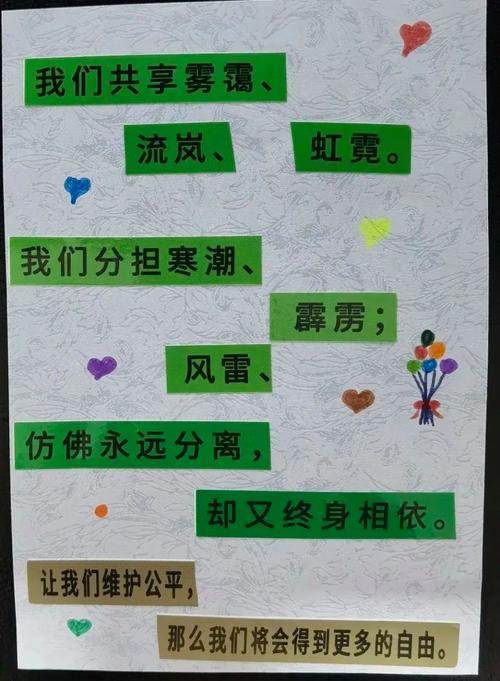 我们共享雾霭、
流岚、虹霓。
我们分担寒潮、
霹雳；
风雷、
仿佛永远分离，
却又终身相依。
让我们维护公平，
那么我们将会得到更多的自由。